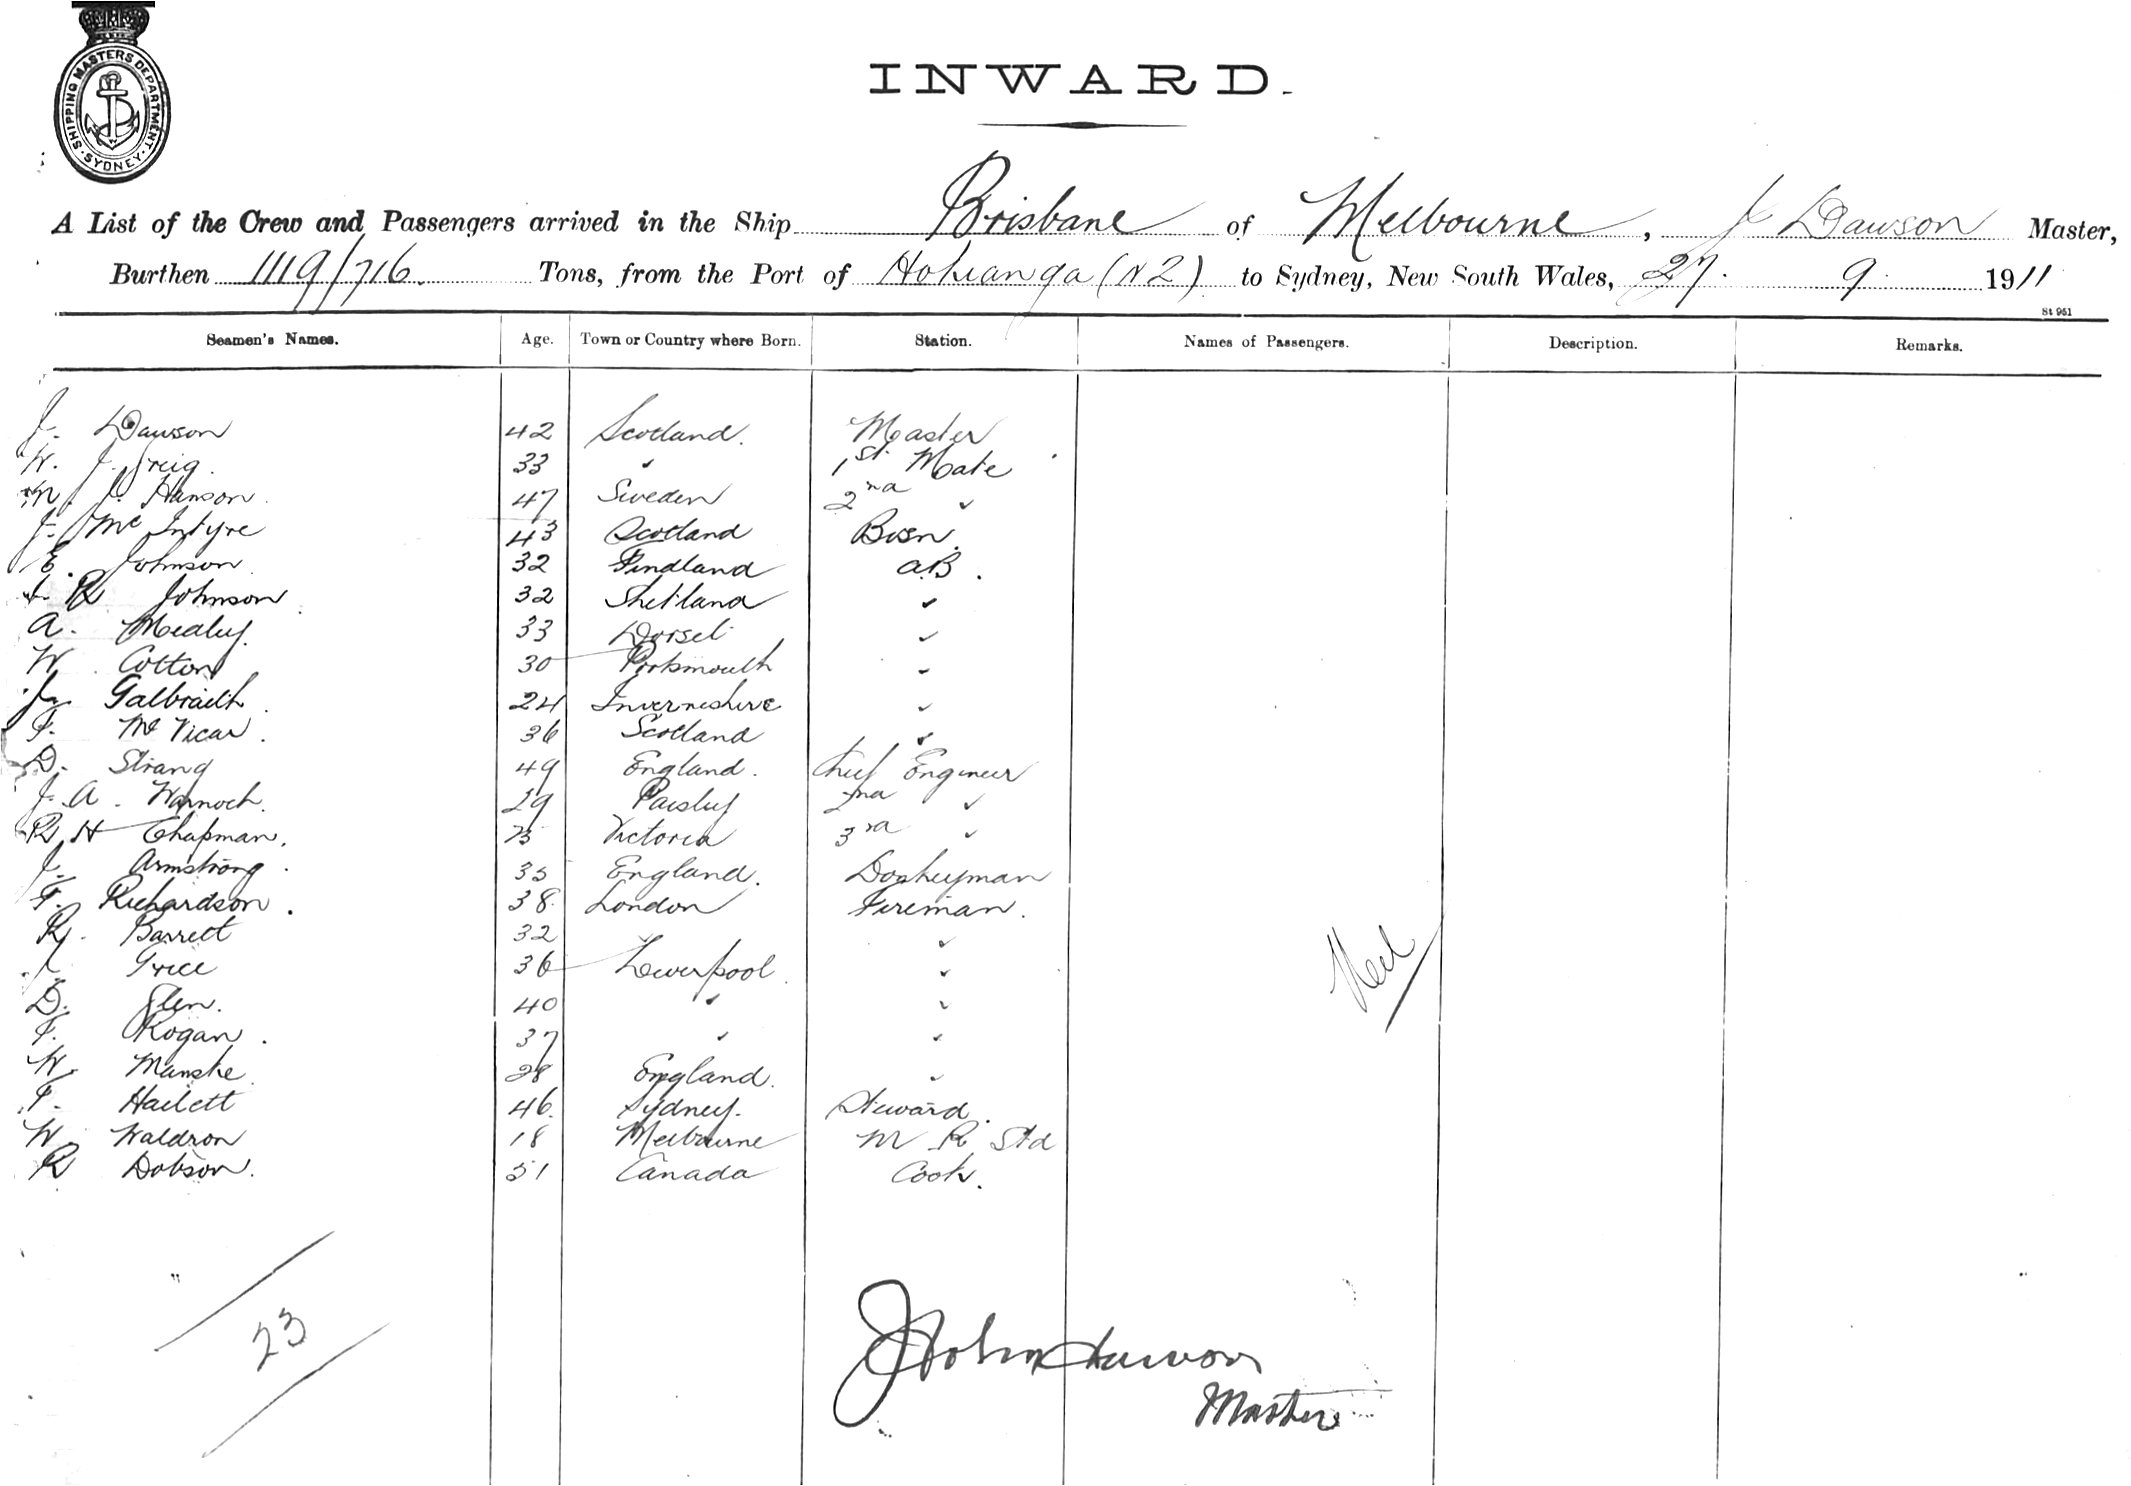 SHIPPING MASTERS DEPARTMENT
SYDNEY
INWARD.
A List of the Crew and Passengers arrived in the Ship Brisbane of Melbourne, J Dawson Master,
Burthen 1119/716. Tons, from the Port of Hokianga (NZ) to Sydney, New South Wales, 27. 9. 1911
St 951
Seamen's Names. Age. Town or Country where Born. Station. Names of Passengers. Description. Remarks.
J. Dawson 42 Scotland. Master
W. J. Greig. 33 " 1st Mate
47 Sweden 2nd "
J. Mc Intyre 43 Scotland Bosn.
E. Johnson. 32 Findland AB.
R Johnson 32 Shetland "
A. Medley. 33 Dorset "
W. Cotton 30 Portsmouth "
J. Galbraith. 24 Invernishire "
F. Mc Vicar. 36 Scotland "
D. Strang 49 England. Chief Engineer
J. A. Warnock. 29 Paisley 2nd "
R H Chapman. 23 Victoria 3rd "
J. Armstrong. 35 England. Donkeyman
F. Richardson. 38. London Fireman.
R. Barrett 32 "
J. Grice 36 Liverpool. "
D. Glen. 40 " "
F. Rogan. 37 " "
W. Manske. 28 England. "
F. Hailett 46. Sydney. Steward.
W. Waldron 18 Melbourne M R Std
R Dobson. 51 Canada Cook.
Nil
23
John Dawson
Master